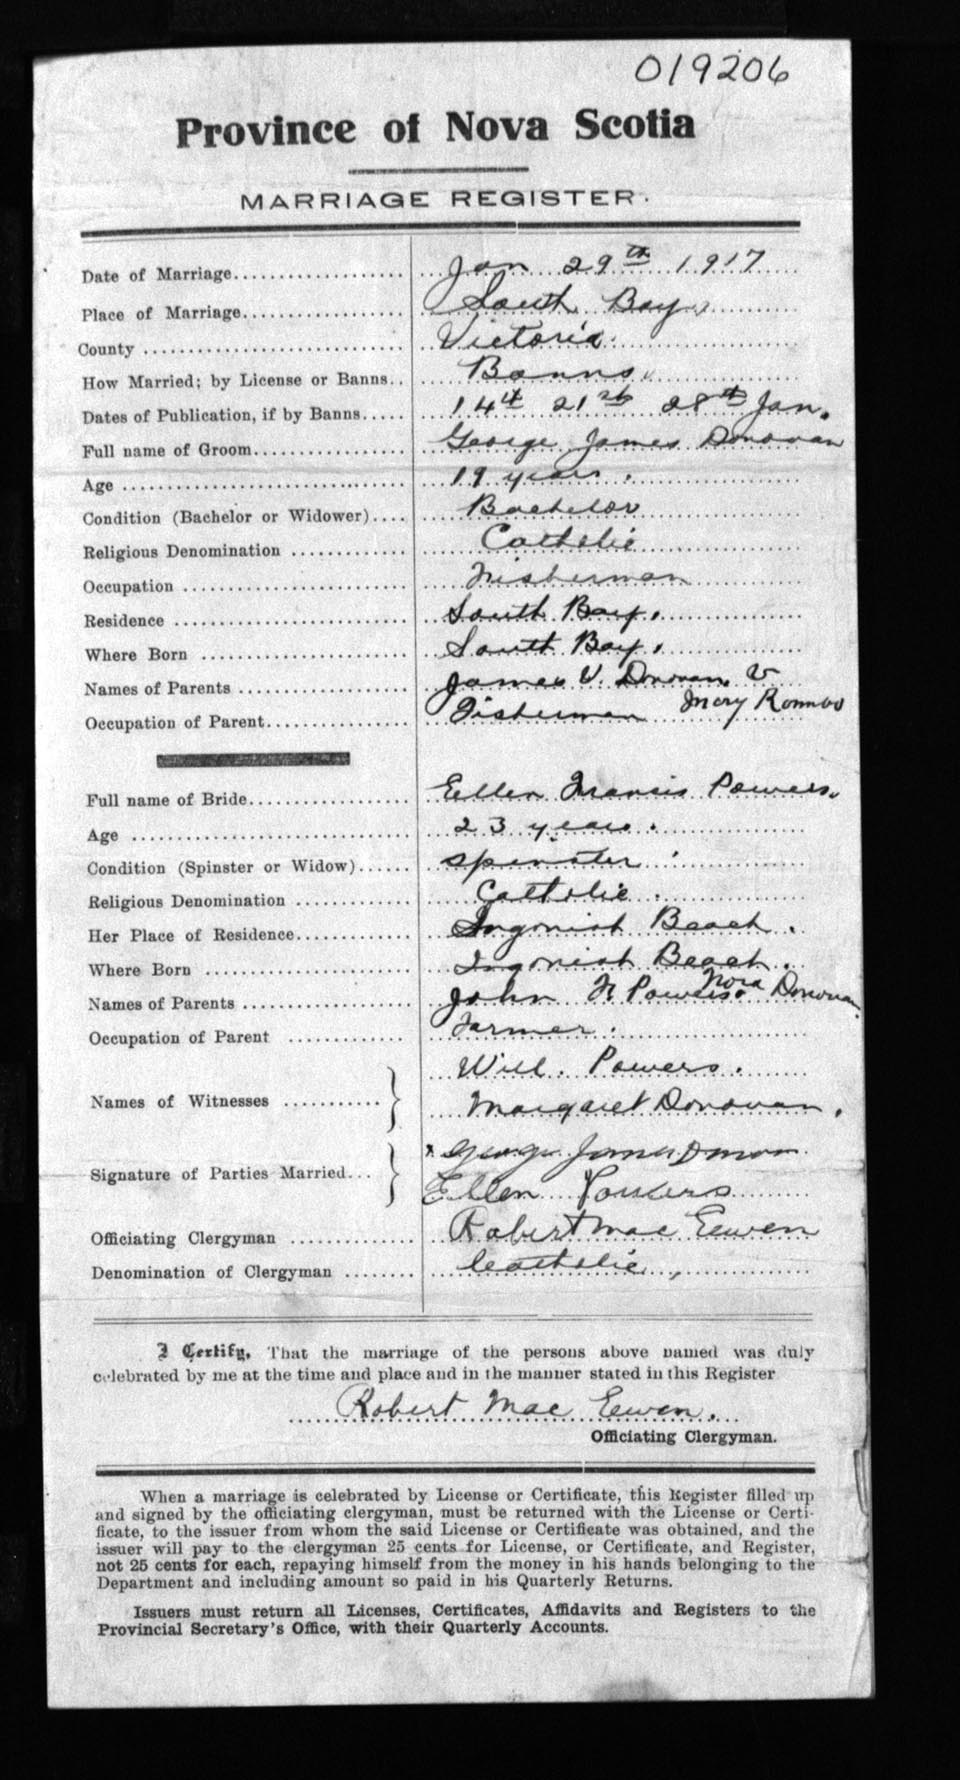 019206
Province of Nova Scotia
MARRIAGE REGISTER.
Date of Marriage.................... Jan 29th 1917
Place of Marriage................... South Bay
County ............................ Victoria
How Married; by License or Banns.. Banns
Dates of Publication, if by Banns..... 14th 21st 28th Jan.
Full name of Groom................. George James Donovan
Age ............................... 19 years.
Condition (Bachelor or Widower).... Bachelor
Religious Denomination ............ Catholic
Occupation ........................ Fisherman
Residence ......................... South Bay.
Where Born ....................... South Bay.
Names of Parents .................. James V. Donovan. V
Mary
Occupation of Parent............... Fisherman
Full name of Bride.................. Ellen Francis Powers.
Age .............................. 23 years.
Condition (Spinster or Widow)...... Spinster
Religious Denomination ............ Catholic.
Her Place of Residence............. Ingonish Beach.
Where Born ....................... Ingonish Beach.
Names of Parents .................. John Powers. Nora Donovan.
Occupation of Parent ............. Farmer.
Will. Powers.
Names of Witnesses ...........
Margaret Donovan.
x George James Donovan
Signature of Parties Married...
Ellen Powers
Officiating Clergyman .............. Robert Mac Ewen
Denomination of Clergyman ........ Catholic
I Certify, That the marriage of the persons above named was duly
celebrated by me at the time and place and in the manner stated in this Register
Robert Mac Ewen.
Officiating Clergyman.
When a marriage is celebrated by License or Certificate, this Register filled up
and signed by the officiating clergyman, must be returned with the License or Certi-
ficate, to the issuer from whom the said License or Certificate was obtained, and the
issuer will pay to the clergyman 25 cents for License, or Certificate, and Register,
not 25 cents for each, repaying himself from the money in his hands belonging to the
Department and including amount so paid in his Quarterly Returns.
Issuers must return all Licenses, Certificates, Affidavits and Registers to the
Provincial Secretary's Office, with their Quarterly Accounts.